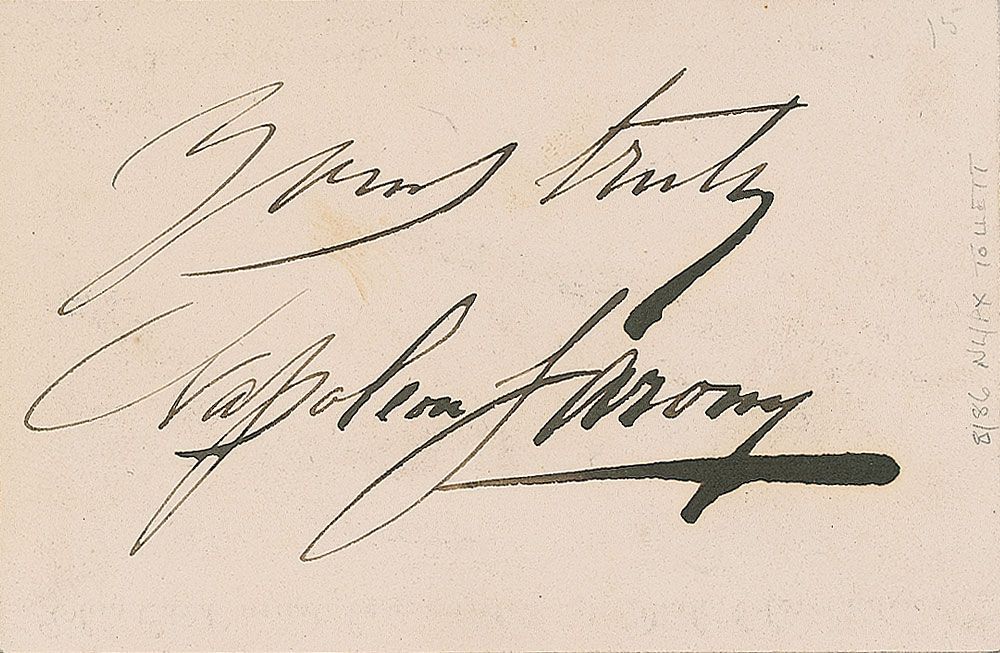 15
Yours truly
Napoleon Sarony
8/86 NL/PX TOLLETT